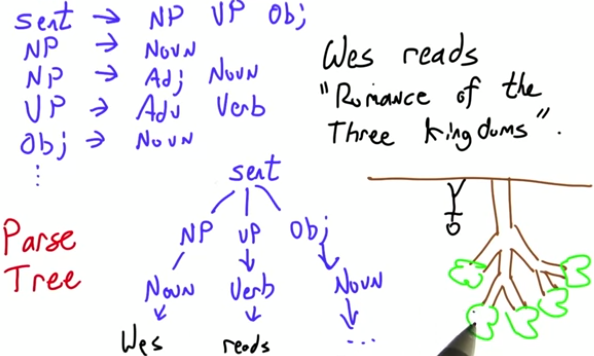 sent → NP VP Obj
NP → Noun
NP → Adj Noun
VP → Adv Verb
Obj → Noun
⋮
Wes reads
"Romance of the
Three Kingdoms".
Parse
Tree
sent
NP VP Obj
Noun Verb Noun
Wes reads ...